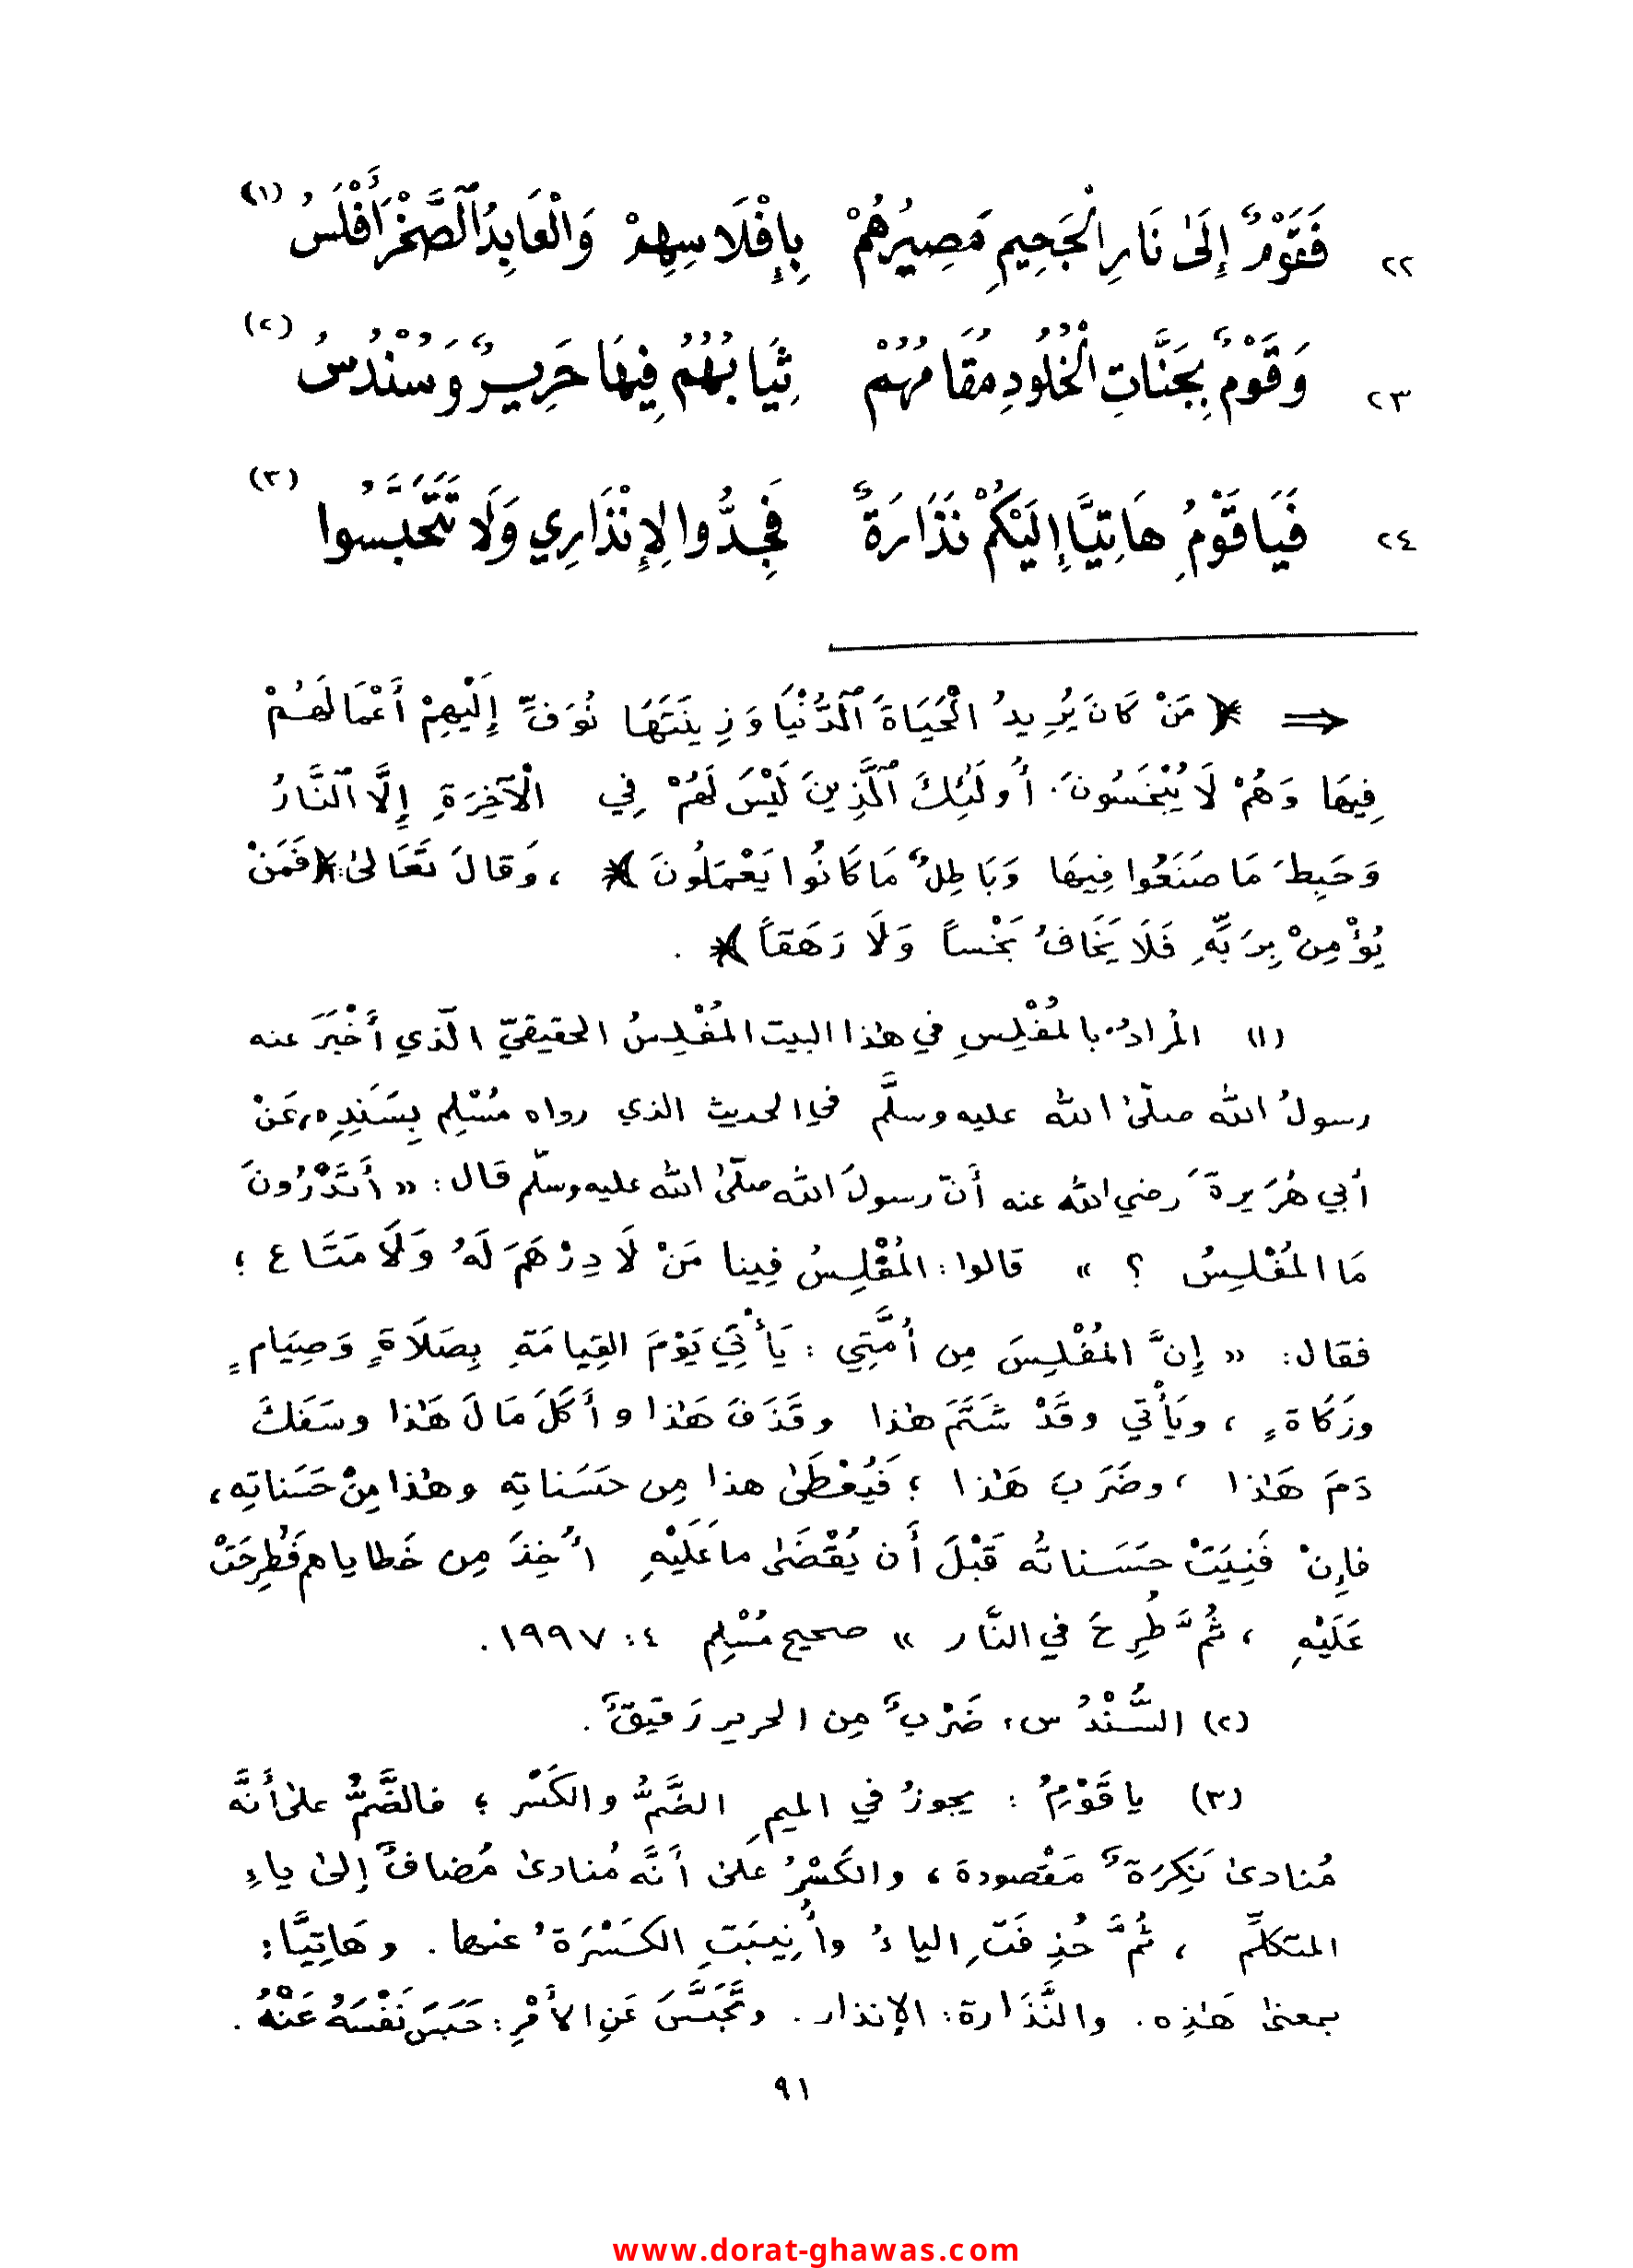 ٢٢ فَقَوْمٌ إِلَىٰ نَارِ الْجَحِيمِ مَصِيرُهُمْ بِإِفْلَاسِهِمْ وَالْعَابِدُ ٱلصَّخْرَ أَفْلَسُ (١)
٢٣ وَقَوْمٌ بِجَنَّاتِ الْخُلُودِ مُقَامُهُمْ ثِيَابُهُمُ فِيهَا حَرِيرٌ وَسُنْدُسُ (٢)
٢٤ فَيَا قَوْمُِ هَاتِيَّا إِلَيْكُمْ نَذَارَةً فَجِدُّوا لِإِنْذَارِي وَلَا تَتَحَبَّسُوا (٣)
⇐ ﴿ مَنْ كَانَ يُرِيدُ الْحَيَاةَ ٱلدُّنْيَا وَزِينَتَهَا نُوَفِّ إِلَيْهِمْ أَعْمَالَهُمْ
فِيهَا وَهُمْ لَا يُبْخَسُونَ . أُولَٰئِكَ ٱلَّذِينَ لَيْسَ لَهُمْ فِي الْآخِرَةِ إِلَّا ٱلنَّارُ
وَحَبِطَ مَا صَنَعُوا فِيهَا وَبَاطِلٌ مَا كَانُوا يَعْمَلُونَ ﴾ ، وَقَالَ تَعَالَىٰ: ﴿ فَمَنْ
يُؤْمِنْ بِرَبِّهِ فَلَا يَخَافُ بَخْساً وَلَا رَهَقاً ﴾ .
(١) المُرادُ بالمُفْلِسِ في هٰذا البيت المُفْلِسُ الحقيقيّ الّذي أَخْبَرَ عنه
رسولُ الله صلّىٰ الله عليه وسلَّم في الحديث الذي رواه مُسْلِم بِسَنَدِهِ، عَنْ
أبي هُرَيرةَ رضي الله عنه أنّ رسولَ الله صلّىٰ الله عليه وسلّم قَال : « أَتَدْرُونَ
مَا المُفْلِسُ ؟ » قالوا : المُفْلِسُ فِينا مَنْ لَا دِرْهَمَ لَهُ وَلَا مَتَاع ؛
فقال : « إِنَّ المُفْلِسَ مِن أُمَّتِي : يَأْتِي يَوْمَ القِيامَةِ بِصَلَاةٍ وَصِيَامٍ
وزَكَاةٍ ، ويَأْتي وقَدْ شَتَمَ هٰذا وقَذَفَ هَٰذا وأَكَلَ مَالَ هَٰذا وسَفَكَ
دَمَ هَٰذا ، وضَرَبَ هَٰذا ؛ فَيُعْطَىٰ هذا مِن حَسَناتِه وهٰذا مِنْ حَسَناتِه ،
فإِنْ فَنِيَتْ حَسَناتُه قَبْلَ أَن يُقْضَىٰ ما عَلَيْهِ أُخِذَ مِن خَطاياهم فَطُرِحَتْ
عَلَيْهِ ، ثُمَّ طُرِحَ في النَّار » صحيح مُسْلِم ٤ : ١٩٩٧ .
(٢) السُّنْدُس : ضَرْبٌ مِن الحرير رَقيقٌ .
(٣) يا قَوْمُِ : يجوزُ في الميمِ الضَّمُّ والكَسْر ؛ فالضَّمُّ علىٰ أَنَّه
مُنادىٰ نَكِرَةٌ مَقْصودة ، والكَسْرُ علىٰ أَنَّه مُنادىٰ مُضافٌ إلىٰ ياءِ
المتكلِّم ، ثُمَّ حُذِفَتِ الياءُ وأُنِيبَتِ الكَسْرَةُ عنها . وهَاتِيَّا :
بمعنىٰ هَٰذِه . والنَّذَارة : الإنذار . وتَحَبَّسَ عَنِ الأَمْرِ : حَبَسَ نَفْسَهُ عَنْهُ .
٩١
www.dorat-ghawas.com